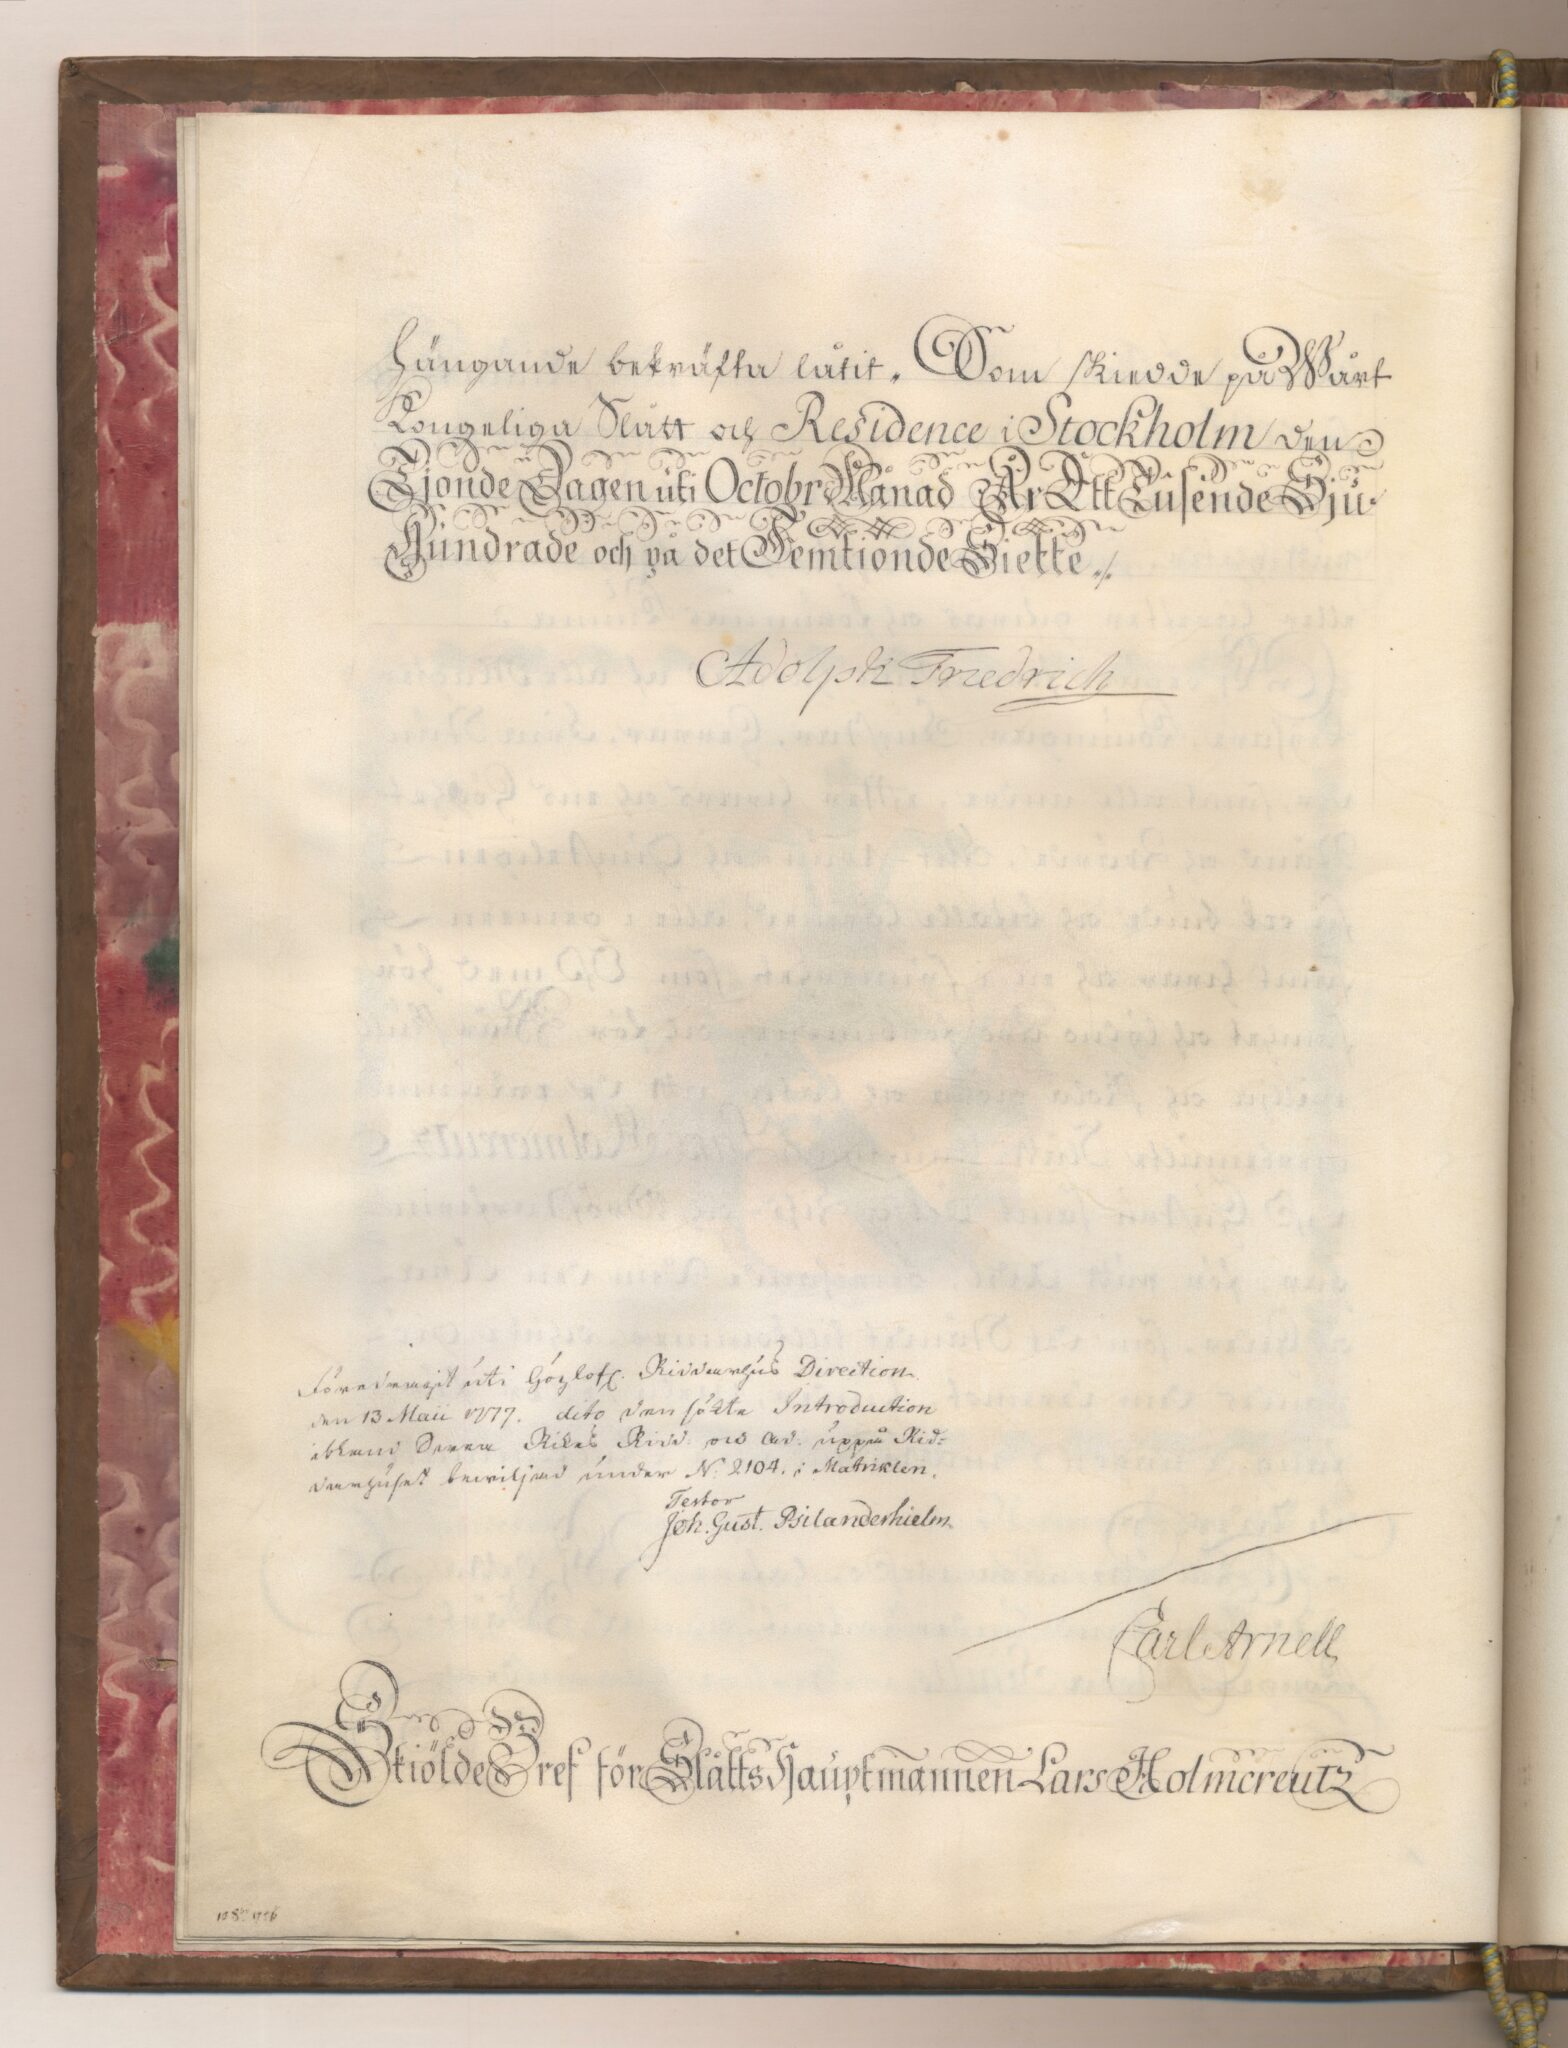 hängande bekräfta låtit. Som skiedde på Wårt
Kongeliga Slått och Residence i Stockholm den
Tjonde Dagen uti Octobr Månad År Ett Tusende Sju-
Hundrade och på det Femtionde Siette./.
Adolph Friedrich
Föredragit uti Höglofl. Riddarhus Direction
den 13 Maii 1777. dito den sökte Introduction
ibland Deras Rikets Ridd. och Ad. uppå Rid=
darhuset beviljad under N: 2104. i Matriklen.
Testor
Joh. Gust. Psilanderhielm
Carl Arnell
Skiölde Bref för Slåtts Hauptmannen Lars Holmcreutz